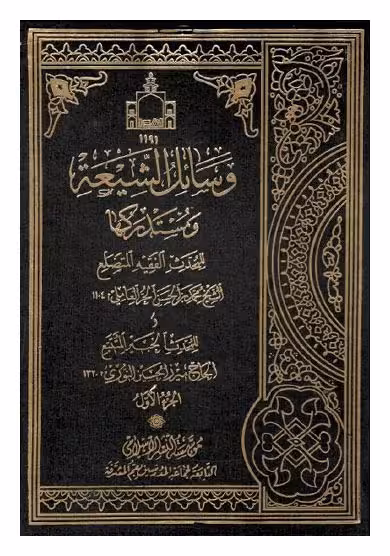 ١١٩١
وسائل الشيعة
ومستدركها
للمحدث الفقيه المتضلع
الشيخ محمد بن الحسن الحر العاملي ١١٠٤
و
للمحدث الخبير المتتبع
الحاج ميرزا حسين النوري ١٣٢٠
الجزء الأول
مؤسسة النشر الإسلامي
التابعة لجماعة المدرسين بقم المشرفة